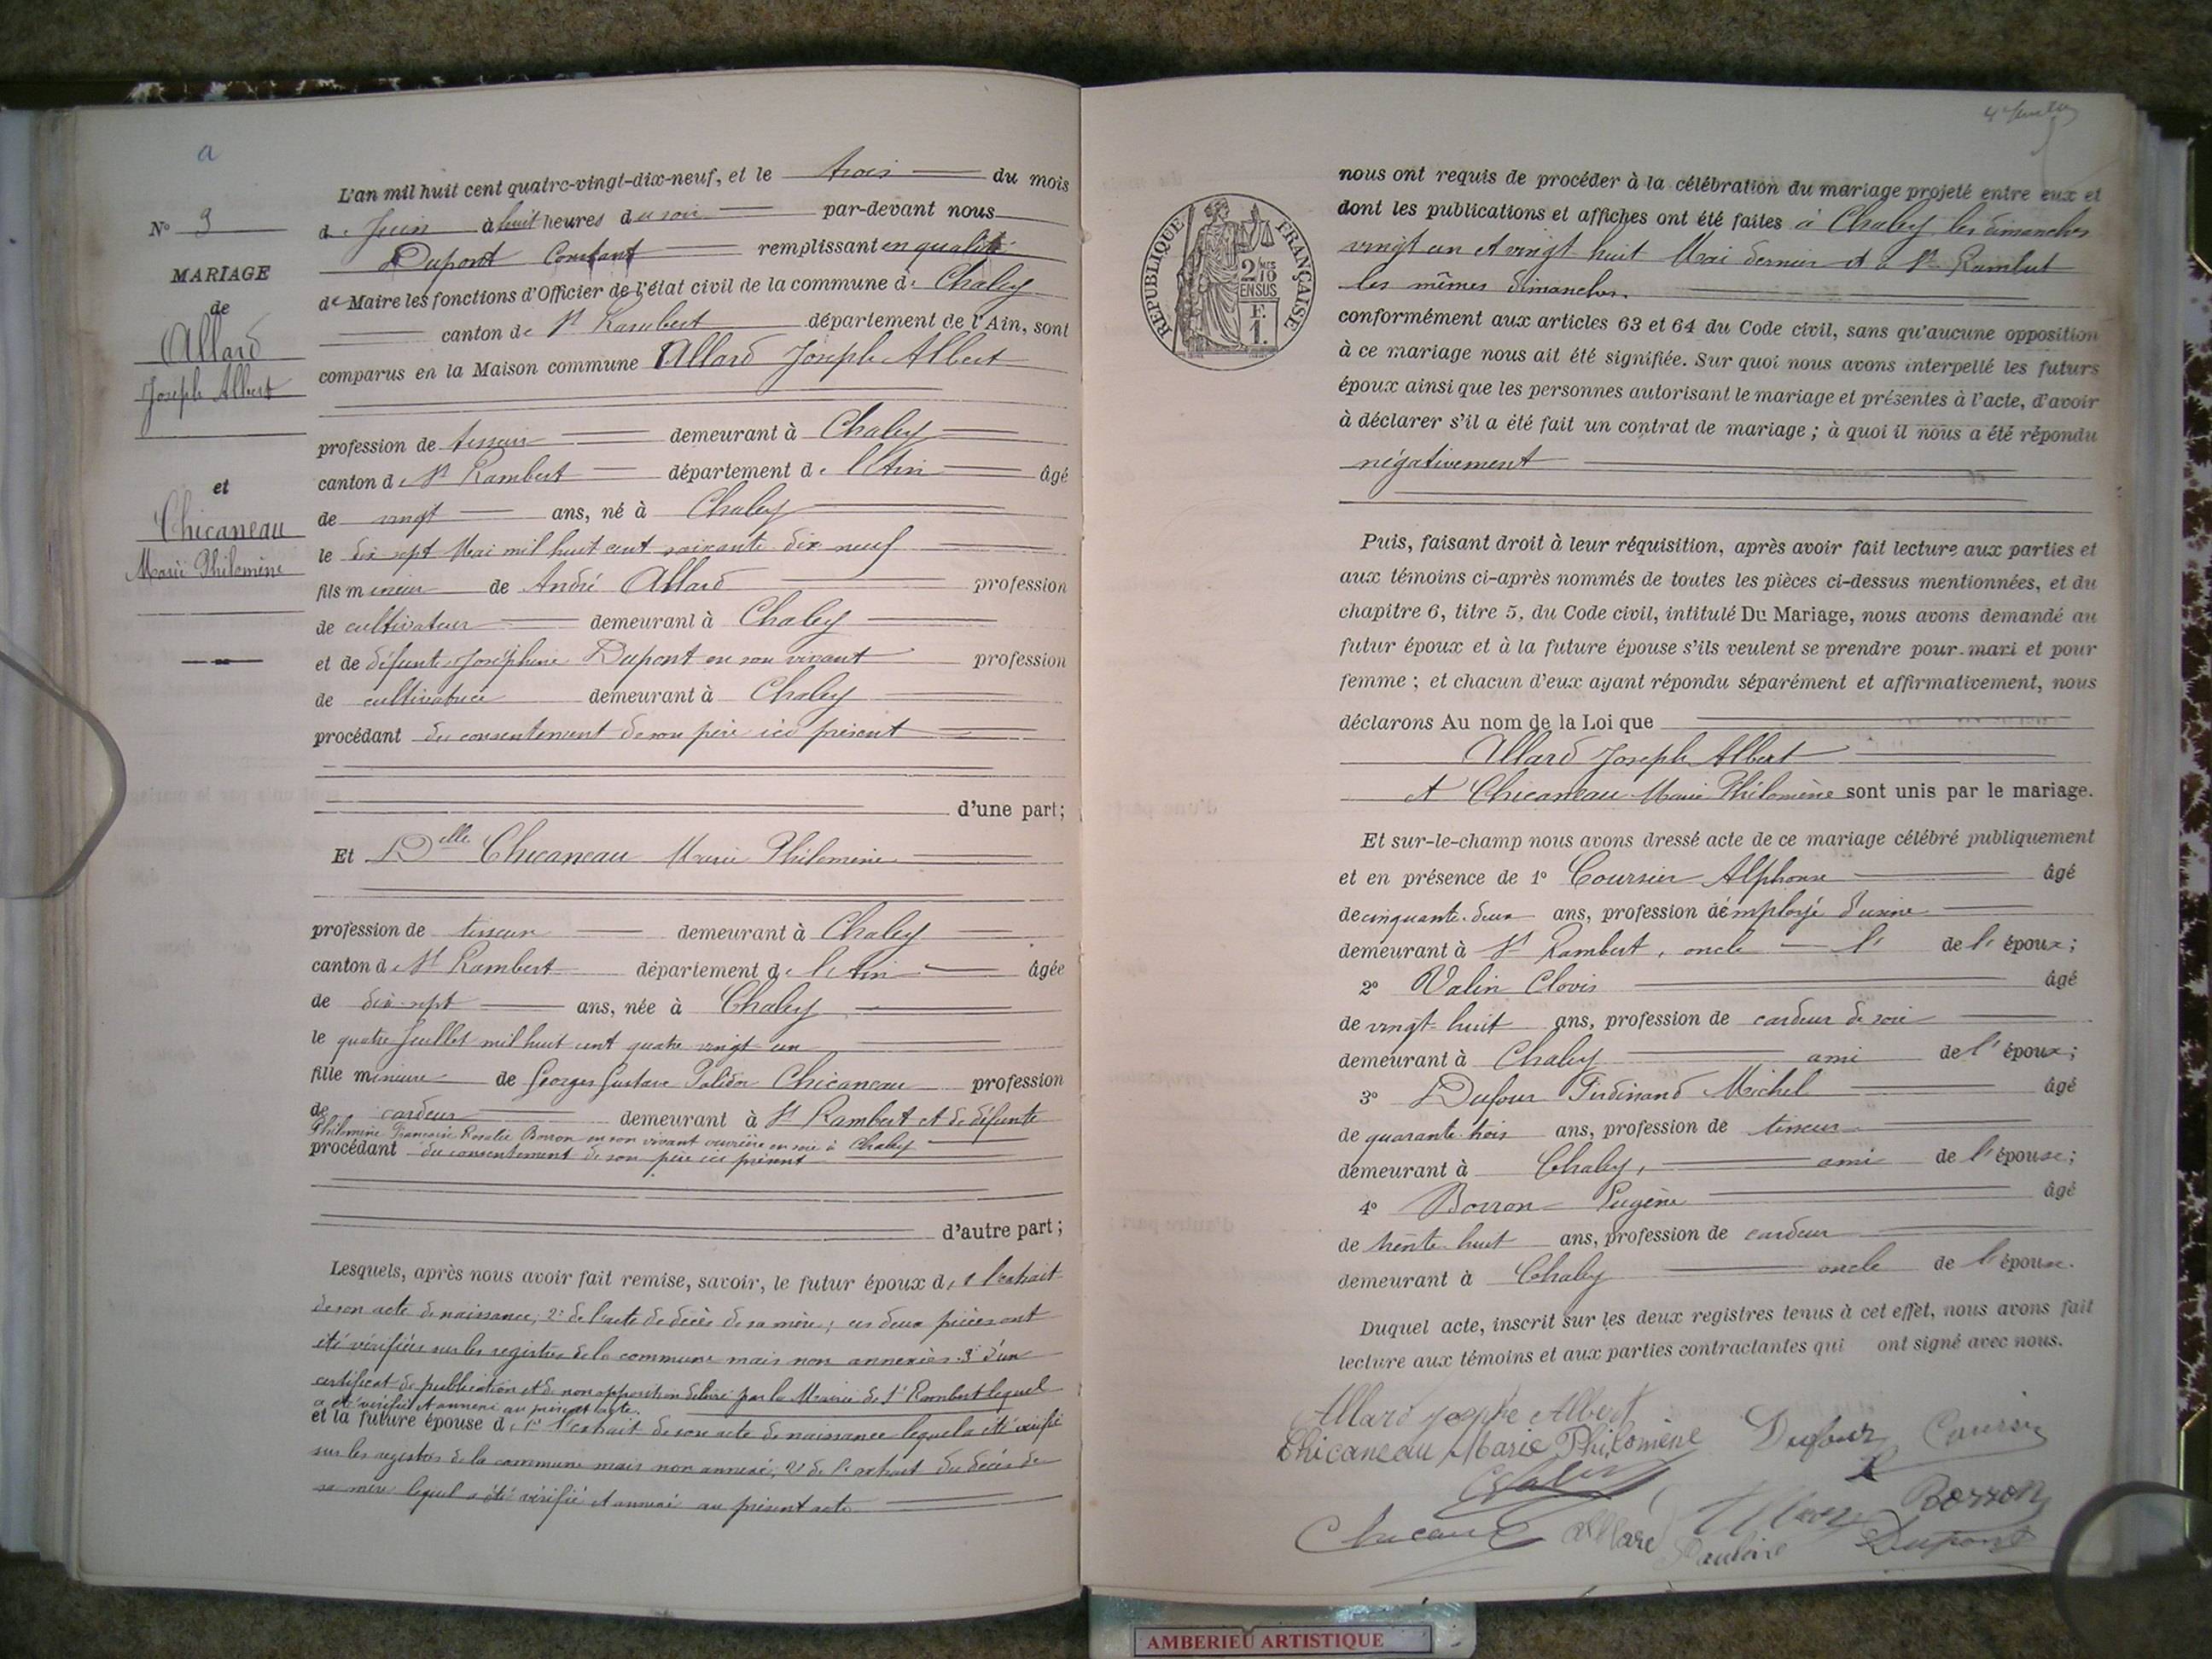 a
N° 3
MARIAGE
de
Allard
Joseph Albert
et
Chicaneau
Marie Philomène
L'an mil huit cent quatre-vingt-dix-neuf, et le trois du mois
de Juin à huit heures du soir par-devant nous
Dupont Constant remplissant en qualité
de Maire les fonctions d'Officier de l'état civil de la commune de Chaley
canton de St Rambert département de l'Ain, sont
comparus en la Maison commune Allard Joseph Albert
profession de tisseur demeurant à Chaley
canton de St Rambert département de l'Ain âgé
de vingt ans, né à Chaley
le dix sept Mai mil huit cent soixante dix neuf
fils mineur de André Allard profession
de cultivateur demeurant à Chaley
et de défunte Joséphine Dupont en son vivant profession
de cultivatrice demeurant à Chaley
procédant du consentement de son père ici présent
d'une part;
Et Delle Chicaneau Marie Philomène
profession de tisseur demeurant à Chaley
canton de St Rambert département de l'Ain âgée
de dix-sept ans, née à Chaley
le quatre Juillet mil huit cent quatre vingt un
fille mineure de Georges Gustave Polidor Chicaneau profession
de cardeur demeurant à St Rambert et de défunte
Philomène Françoise Rosalie Borron en son vivant ouvrière en soie à Chaley
procédant du consentement de son père ici présent
d'autre part;
Lesquels, après nous avoir fait remise, savoir, le futur époux de 1° l'extrait
de son acte de naissance; 2° de l'acte de décès de sa mère; ces deux pièces ont
été vérifiées sur les registres de la commune mais non annexées 3° d'un
certificat de publication et de non opposition délivré par la Mairie de St Rambert lequel
a été vérifié et annexé au présent acte.
et la future épouse de 1° l'extrait de son acte de naissance lequel a été vérifié
sur les registres de la commune mais non annexé, 2° de l'extrait du décès de
sa mère lequel a été vérifié et annexé au présent acte
RÉPUBLIQUE FRANÇAISE
2/10 EN SUS
F. 1.
nous ont requis de procéder à la célébration du mariage projeté entre eux et
dont les publications et affiches ont été faites à Chaley les dimanches
vingt un et vingt huit Mai dernier et à St Rambert
les mêmes dimanches.
conformément aux articles 63 et 64 du Code civil, sans qu'aucune opposition
à ce mariage nous ait été signifiée. Sur quoi nous avons interpellé les futurs
époux ainsi que les personnes autorisant le mariage et présentes à l'acte, d'avoir
à déclarer s'il a été fait un contrat de mariage; à quoi il nous a été répondu
négativement
Puis, faisant droit à leur réquisition, après avoir fait lecture aux parties et
aux témoins ci-après nommés de toutes les pièces ci-dessus mentionnées, et du
chapitre 6, titre 5, du Code civil, intitulé Du Mariage, nous avons demandé au
futur époux et à la future épouse s'ils veulent se prendre pour mari et pour
femme; et chacun d'eux ayant répondu séparément et affirmativement, nous
déclarons Au nom de la Loi que
Allard Joseph Albert
et Chicaneau Marie Philomène sont unis par le mariage.
Et sur-le-champ nous avons dressé acte de ce mariage célébré publiquement
et en présence de 1° Coursier Alphonse âgé
de cinquante-deux ans, profession d'employé d'usine
demeurant à St Rambert, oncle de l'époux;
2° Valin Clovis âgé
de vingt-huit ans, profession de cardeur de soie
demeurant à Chaley ami de l'époux;
3° Dufour Ferdinand Michel âgé
de quarante trois ans, profession de tisseur
demeurant à Chaley, ami de l'épouse;
4° Borron Eugène âgé
de trente huit ans, profession de cardeur
demeurant à Chaley oncle de l'épouse.
Duquel acte, inscrit sur les deux registres tenus à cet effet, nous avons fait
lecture aux témoins et aux parties contractantes qui ont signé avec nous.
Allard Joseph Albert
Chicaneau Marie Philomène Dufour Coursier
Valin Borron
Chicaneau Allard Dupont
AMBERIEU ARTISTIQUE